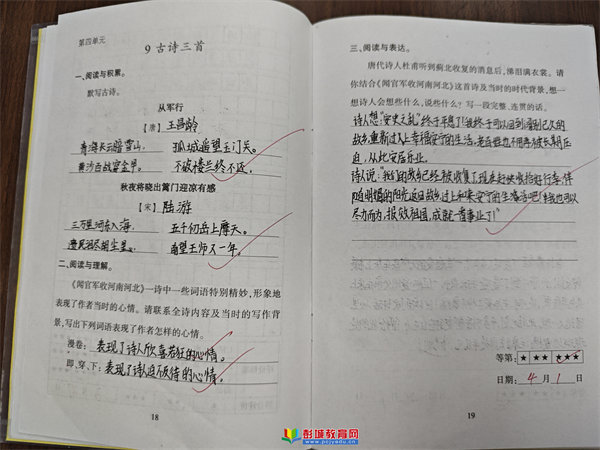 第四单元
9 古诗三首
一、阅读与积累。
默写古诗。
从军行
【唐】 王昌龄
青海长云暗雪山， 孤城遥望玉门关。
黄沙百战穿金甲， 不破楼兰终不还。
秋夜将晓出篱门迎凉有感
【宋】 陆游
三万里河东入海， 五千仞岳上摩天。
遗民泪尽胡尘里， 南望王师又一年。
二、阅读与理解。
《闻官军收河南河北》一诗中一些词语特别精妙，形象地
表现了作者当时的心情。请联系全诗内容及当时的写作背
景，写出下列词语表现了作者怎样的心情。
漫卷： 表现了诗人欣喜若狂的心情。
即、穿、下： 表现了诗人迫 待的心情。
18
三、阅读与表达。
唐代诗人杜甫听到蓟北收复的消息后，涕泪满衣裳。请
你结合《闻官军收河南河北》这首诗及当时的时代背景，想一
想诗人会想些什么，说些什么？写一段完整、连贯的话。
诗人想："安史之乱"终于平息了！我终于可以回到阔别已久的
故乡，重新过上幸福安宁的生活，老百姓也不用再被长期压
迫，从此安居乐业。
诗人说："我们的故乡已经被收复了，现在赶快收拾好行李，伴
随明媚的阳光返回故乡，过上和谐安宁的生活吧！我也可以
尽力而为，报效祖国，成就一番事业了！"
等第： ★ ★★ ★★★
日期： 4 月 1 日
19
彭城教育网
www.pcjyedu.cn